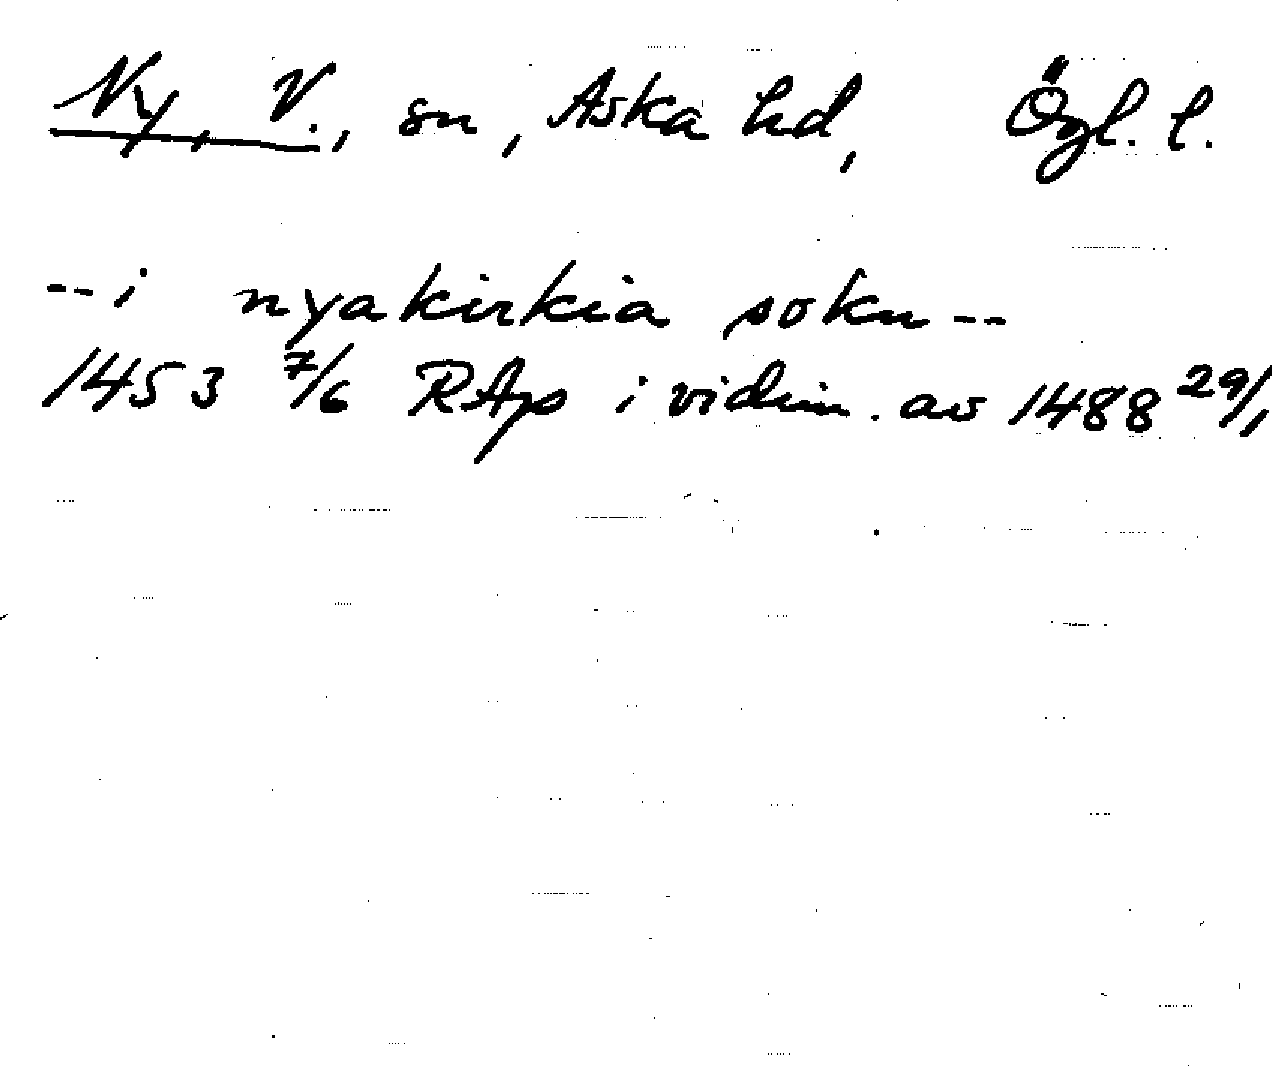 Ny, V., sn, Aska hd, Ögl. l.
--i nyakirkia soku--
1453 7/6 RAp i vidim. av 1488 29/1